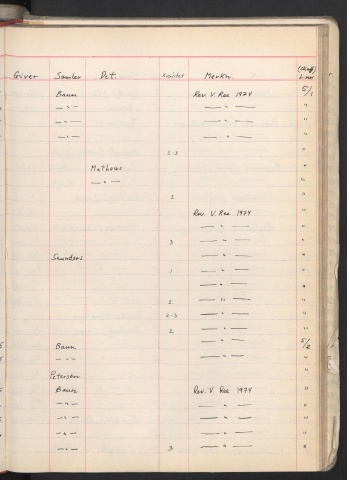 Giver Samler Det. Kvalitet Merkn. (Skuff) L.nr
Baun Rev. V. Rae 1974 5/1
— " — — " — "
— " — — " — "
— " — — " — "
2-3 "
Mathews "
— " — "
2 "
Rev. V. Rae 1974 "
— " — "
3 — " — "
Saunders — " — "
1 — " — "
— " — "
2 — " — "
2-3 — " — "
2 — " — "
Baun — " — 5/2
— " — — " — "
Peterson "
Baun Rev. V. Rae 1974 "
— " — — " — "
— " — — " — "
— " — — " — "
— " — 3 — " — "